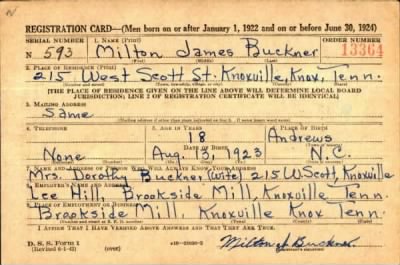 REGISTRATION CARD—(Men born on or after January 1, 1922 and on or before June 30, 1924)
SERIAL NUMBER 1. NAME (Print) ORDER NUMBER
N 593 Milton James Buckner 13364
(First) (Middle) (Last)
2. PLACE OF RESIDENCE (Print)
215 West Scott St. Knoxville, Knox, Tenn.
[THE PLACE OF RESIDENCE GIVEN ON THE LINE ABOVE WILL DETERMINE LOCAL BOARD
JURISDICTION; LINE 2 OF REGISTRATION CERTIFICATE WILL BE IDENTICAL]
3. MAILING ADDRESS
Same
4. TELEPHONE 5. AGE IN YEARS PLACE OF BIRTH
18 Andrews
DATE OF BIRTH
None Aug. 13, 1923 N.C.
7. NAME AND ADDRESS OF PERSON WHO WILL ALWAYS KNOW YOUR ADDRESS
Mrs. Dorothy Buckner (wife) 215 W. Scott, Knoxville
EMPLOYER'S NAME AND ADDRESS
Lee Hill, Brookside Mill, Knoxville Tenn.
PLACE OF EMPLOYMENT OR BUSINESS
Brookside Mill, Knoxville Knox Tenn.
I AFFIRM THAT I HAVE VERIFIED ABOVE ANSWERS AND THAT THEY ARE TRUE.
D. S. S. Form 1
(Revised 6-1-42) (over) Milton J Buckner